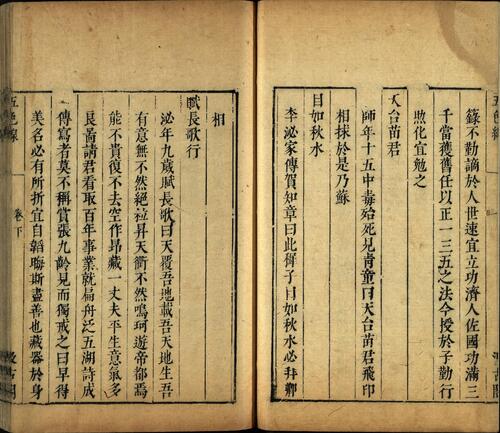 籙不勒謫於人世速宜立功濟人佐國功滿三
千當獲舊任以正一三五之法令授於子勤行
煦化宜勉之
天台苗君
師年十五中毒殆死見青童曰天台苗君飛印
相捄於是乃蘇
目如秋水
李泌家傳賀知章曰此稺子目如秋水必拜卿
相
賦長歌行
泌年九歲賦長歌曰天覆吾地載吾天地生吾
有意無不然絕粒昇天衢不然鳴珂遊帝都焉
能不貴復不去空作昻藏一丈夫平生意氣多
良啚請君看取百年事業就扁舟泛五湖詩成
傳寫者莫不稱賞張九齡見而獨戒之曰早得
美名必有所折宜自韜晦斯盡善也藏器於身
五色線
卷下
汲古閣